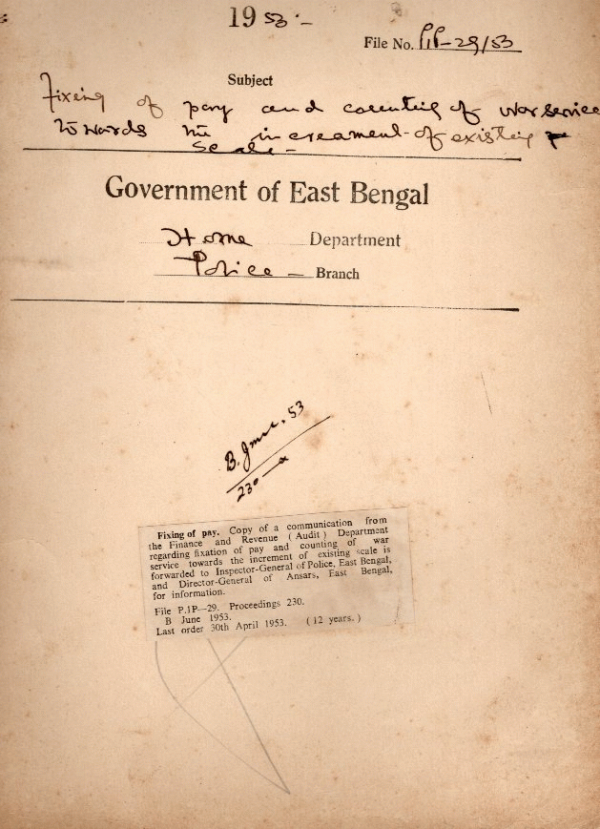 1953 -
File No. P1P-29/53
Subject
Fixing of pay and counting of war service
towards the increament of existing
Scale -
Government of East Bengal
Home Department
Police - Branch
B. June. 53
230
Fixing of pay. Copy of a communication from
the Finance and Revenue (Audit) Department
regarding fixation of pay and counting of war
service towards the increment of existing scale is
forwarded to Inspector-General of Police, East Bengal,
and Director-General of Ansars, East Bengal,
for information.
File P.1P—29. Proceedings 230.
B June 1953.
Last order 30th April 1953. (12 years.)